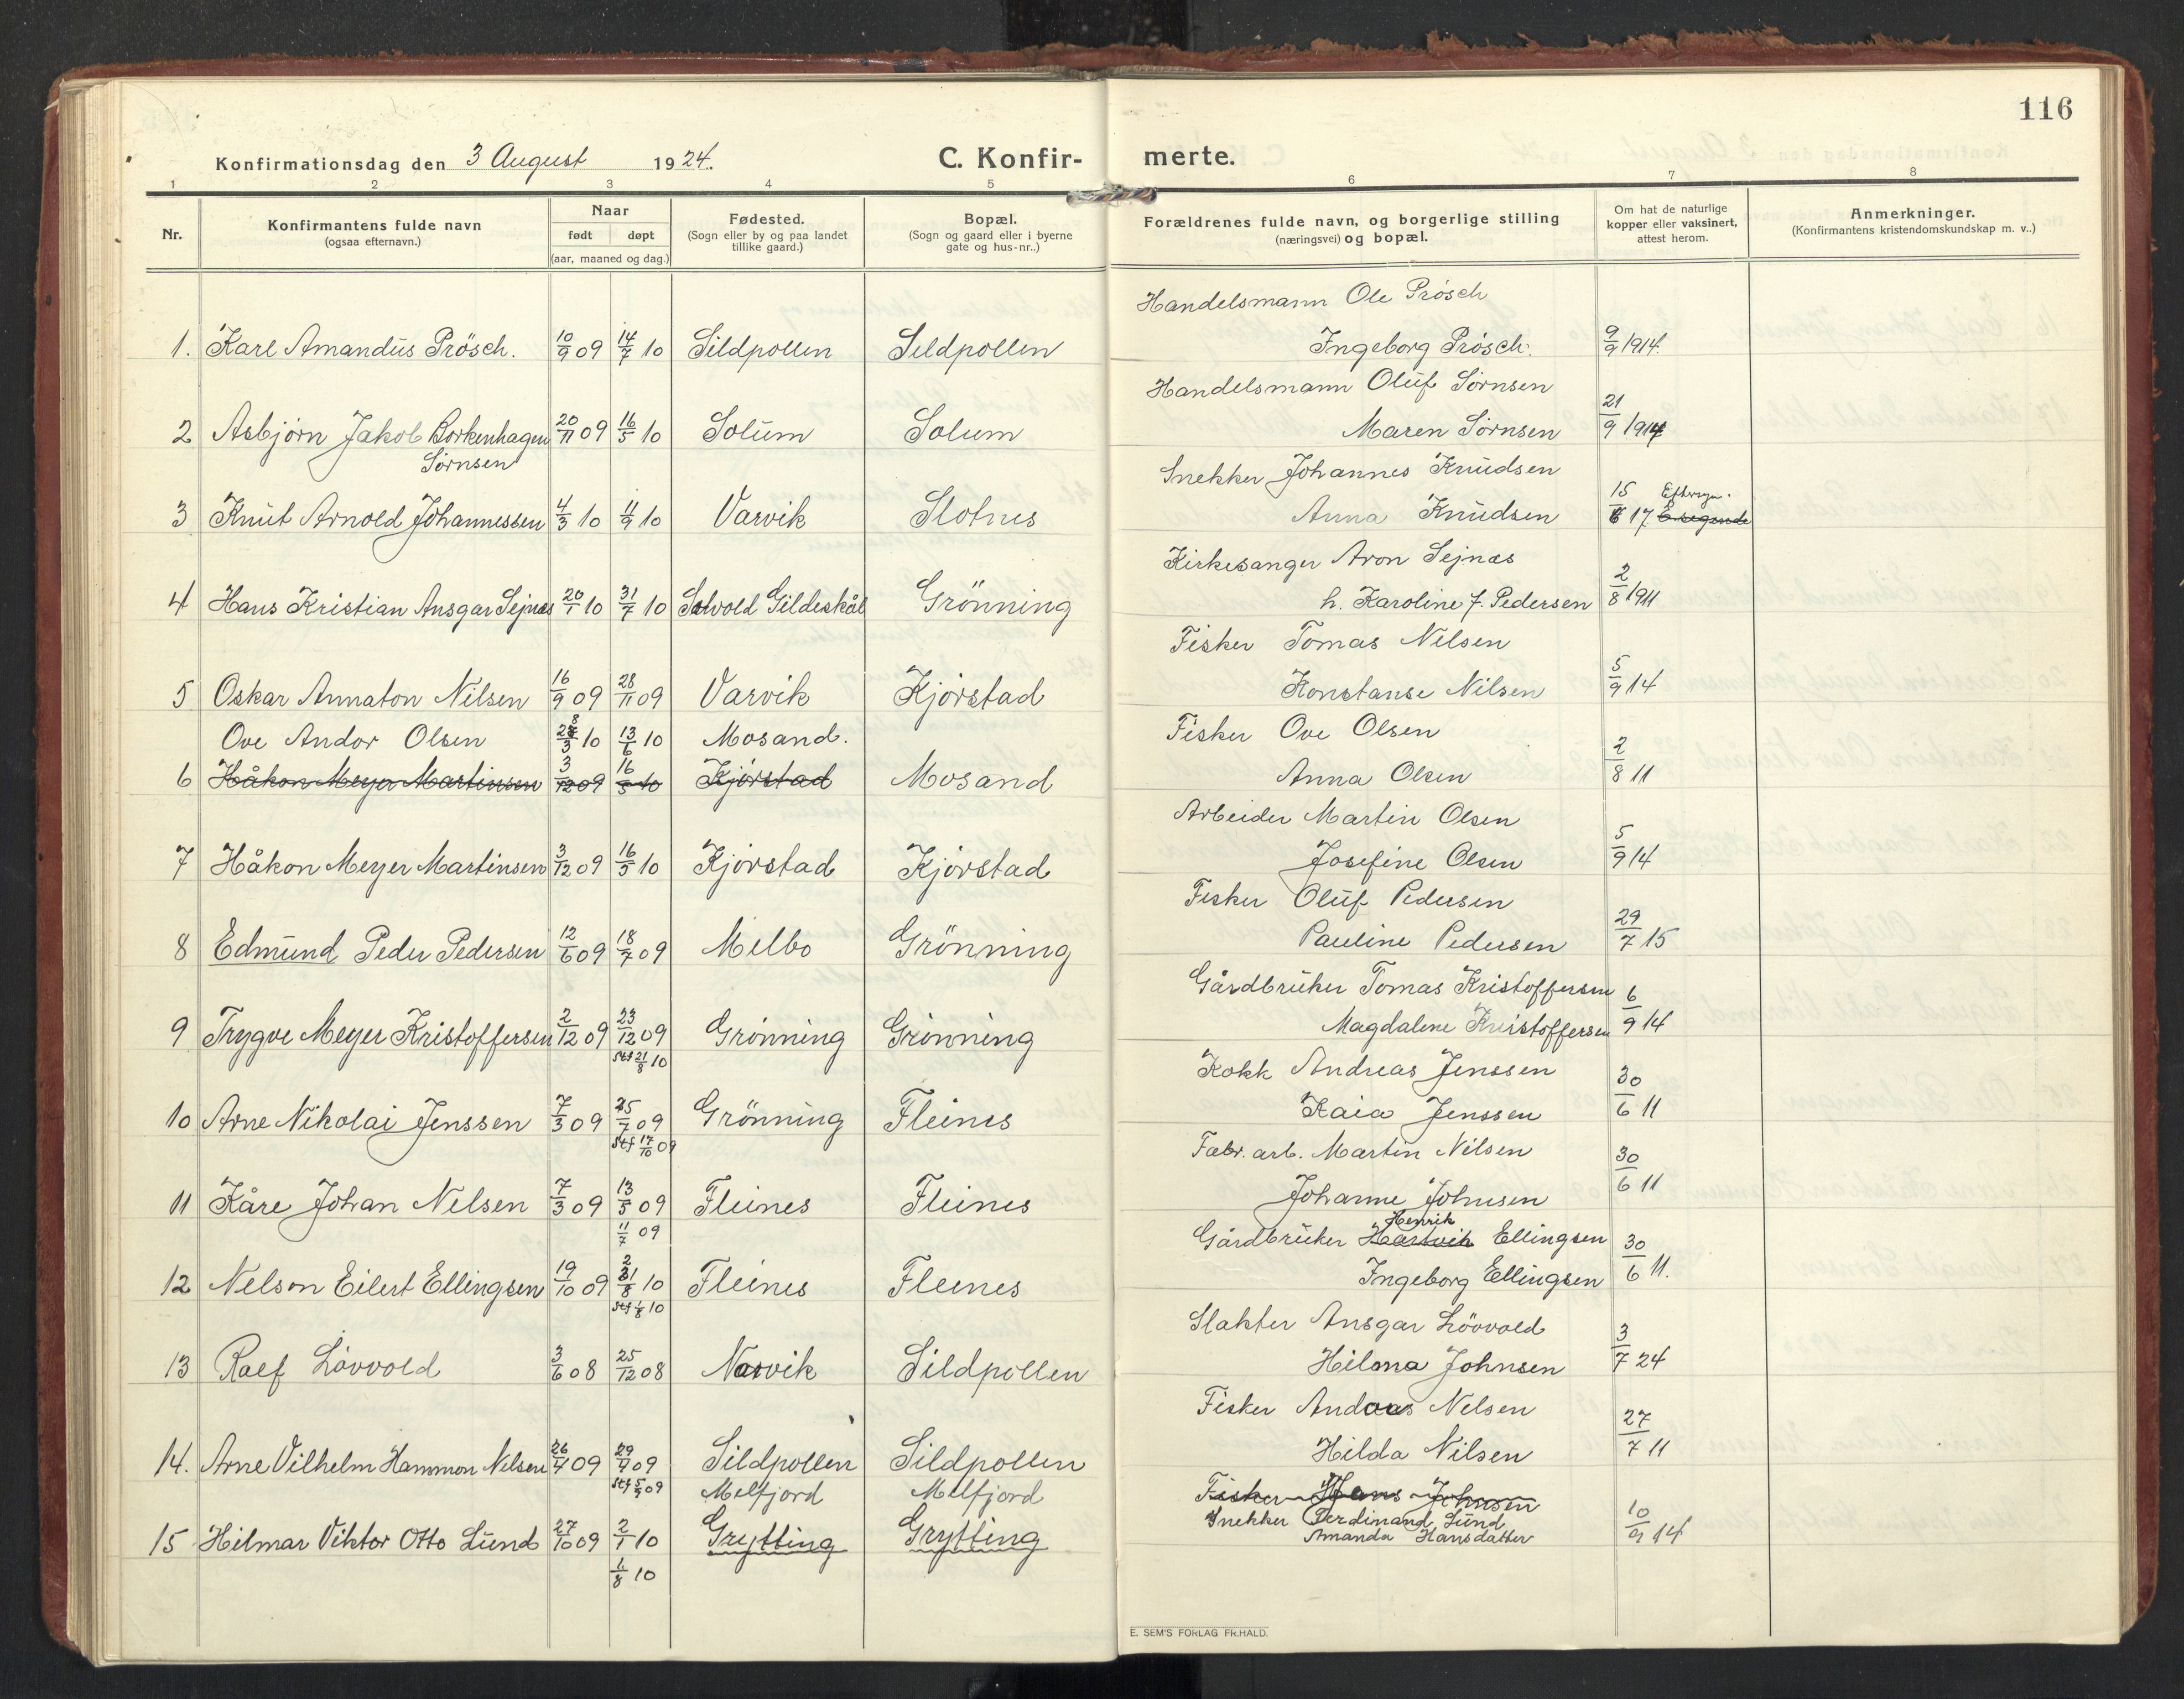 116
Konfirmationsdag den 3 August 1924. C. Konfir- merte.
1 2 3 4 5 6 7 8
Nr.
Konfirmantens fulde navn
(ogsaa efternavn.)
Naar
født døpt
(aar, maaned og dag.)
Fødested.
(Sogn eller by og paa landet
tillike gaard.)
Bopæl.
(Sogn og gaard eller i byerne
gate og hus-nr..)
Forældrenes fulde navn, og borgerlige stilling
(næringsvei) og bopæl.
Om hat de naturlige
kopper eller vaksinert,
attest herom.
Anmerkninger.
(Konfirmantens kristendomskundskap m. v..)
Handelsmann Ole Prösch
1. Karl Amandus Prösch. 10/9 09 14/7 10 Sildpollen Sildpollen Ingeborg Prösch. 9/9 1914.
Handelsmann Oluf Sørnsen
2 Asbjørn Jakob Borkenhagen 20/11 09 16/5 10 Solum Solum Maren Sørnsen 21/9 1914
Sørnsen
Snekker Johannes Knudsen
3 Knut Arnold Johannessen 4/3 10 11/9 10 Varvik Slotnes Anna Knudsen 15/6 17 Eftersyn.
Kirkesanger Aron Sejnæs
4 Hans Kristian Ansgar Sejnæs 20/1 10 31/7 10 Solvold Gildeskål Grönning h. Karoline J. Pedersen 2/8 1911
Fisker Tomas Nilsen
5 Oskar Annaton Nilsen 16/9 09 28/11 09 Varvik Kjørstad Konstanse Nilsen 5/9 14
Ove Andor Olsen 28/3 10 13/6 10 Mosand. Fisker Ove Olsen
6 Håkon Meyer Martinsen 3/12 09 16/5 10 Kjørstad Mosand Anna Olsen 2/8 11
Arbeider Martin Olsen
7 Håkon Meyer Martinsen 3/12 09 16/5 10 Kjørstad Kjørstad Josefine Olsen 5/9 14
Fisker Oluf Pedersen
8 Edmund Peder Pedersen 12/6 09 18/7 09 Melbo Grönning Pauline Pedersen 29/7 15
Gårdbruker Tomas Kristoffersen
9 Trygve Meyer Kristoffersen 2/12 09 23/12 09 Grønning Grønning Magdalene Kristoffersen 6/9 14
stf 21/8 10
Kokk Andreas Jenssen
10 Arne Nikolai Jenssen 7/3 09 25/7 09 Grönning Fleines Kaia Jenssen 30/6 11
stf 17/10 09
Fabr. arb. Martin Nilsen
11 Kåre Johan Nilsen 7/3 09 13/5 09 Fleines Fleines Johanne Johnsen 30/6 11
11/7 09
Henrik
Gårdbruker Hartvik Ellingsen
12 Nelson Eilert Ellingsen 19/10 09 2 31/8 10 Fleines Fleines Ingeborg Ellingsen 30/6 11.
stf 1/8 10
Slakter Ansgar Lövvold
13 Ralf Lövvold 3/6 08 25/12 08 Narvik Sildpollen Hilma Johnsen 3/7 24
Fisker Andreas Nilsen
14. Arne Vilhelm Hammon Nilsen 26/4 09 29/4 09 Sildpollen Sildpollen Hilda Nilsen 27/7 11
stf 5/9 09 Melfjord Melfjord Fisker Hans Johnsen
Snekker Ferdinand Lund
15 Hilmar Viktor Otto Lund 27/10 09 2/1 10 Grytting Grytting Amanda Hansdatter 10/9 14
1/8 10
E. SEM'S FORLAG FR.HALD.